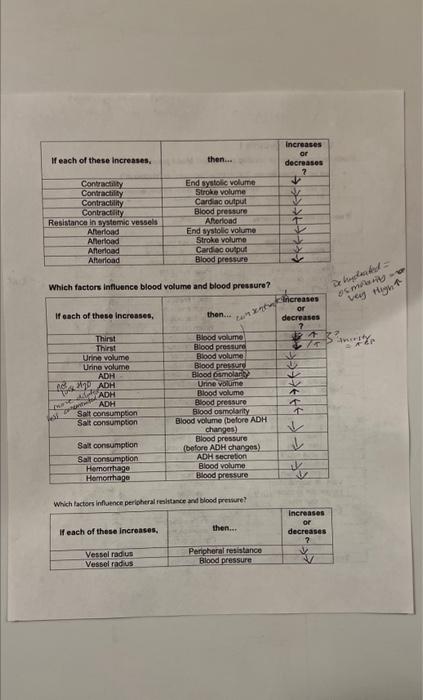 If each of these increases, then... Increases or decreases ?
Contractility End systolic volume ↓
Contractility Stroke volume ↓
Contractility Cardiac output ↓
Contractility Blood pressure ↓
Resistance in systemic vessels Afterload ↑
Afterload End systolic volume ↓
Afterload Stroke volume ↓
Afterload Cardiac output ↓
Afterload Blood pressure ↓
Dehydrated =
osmolarity
very high ↑
Which factors influence blood volume and blood pressure?
If each of these increases, then... Increases or decreases ?
Thirst Blood volume ↑
Thirst Blood pressure ↑
Urine volume Blood volume ↓
Urine volume Blood pressure ↓
ADH Blood Osmolarity ↓
ADH Urine volume ↓
ADH Blood volume ↑
ADH Blood pressure ↑
Salt consumption Blood osmolarity ↑
Salt consumption Blood volume (before ADH changes) ↓
Salt consumption Blood pressure (before ADH changes) ↓
Salt consumption ADH secretion
Hemorrhage Blood volume ↓
Hemorrhage Blood pressure ↓
Which factors influence peripheral resistance and blood pressure?
If each of these increases, then... Increases or decreases ?
Vessel radius Peripheral resistance ↓
Vessel radius Blood pressure ↓